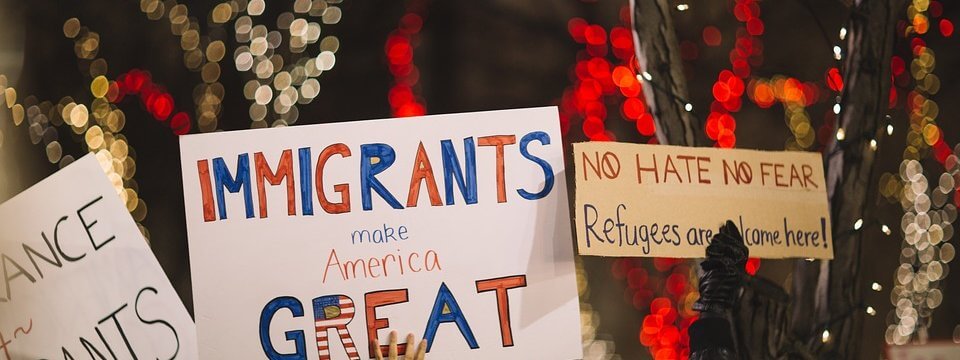 ANCE
ANTS
IMMIGRANTS
make
America
GREAT
NO HATE NO FEAR
Refugees are here!